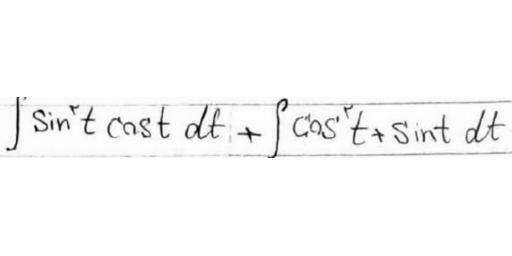 ∫ sin²t cost dt + ∫ cos²t + sint dt